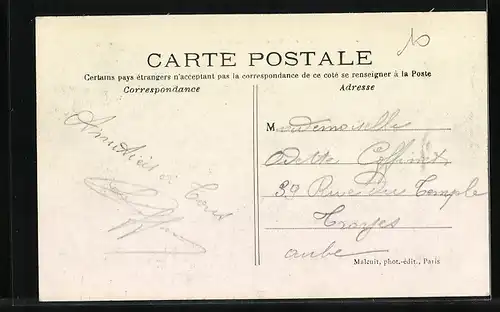 10
CARTE POSTALE
Certains pays étrangers n'acceptant pas la correspondance de ce coté se renseigner à la Poste
Correspondance
Adresse
Amitiés à Tous
Mademoiselle
Odette Coffinet
39 Rue du Temple
Troyes
Aube
Maleuit, phot.-édit., Paris